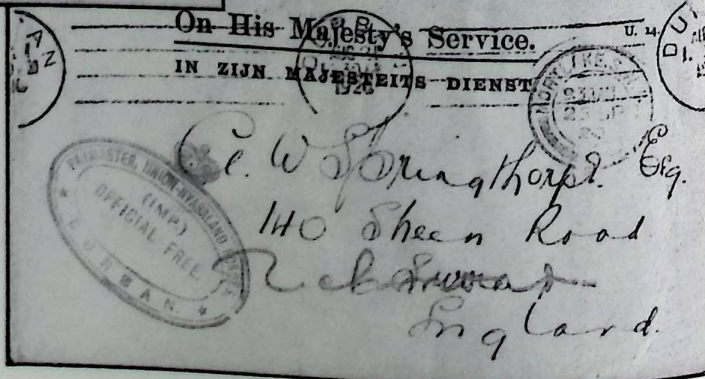 On His Majesty's Service.
U. 14.
IN ZIJN MAJESTEITS DIENST
1926
MORTLAKE, S.W.
PAYMASTER, UNION-NYASALAND
(IMP.)
OFFICIAL FREE.
DURBAN
C. W. Springthorpe. Esq.
140 Sheen Road
England.